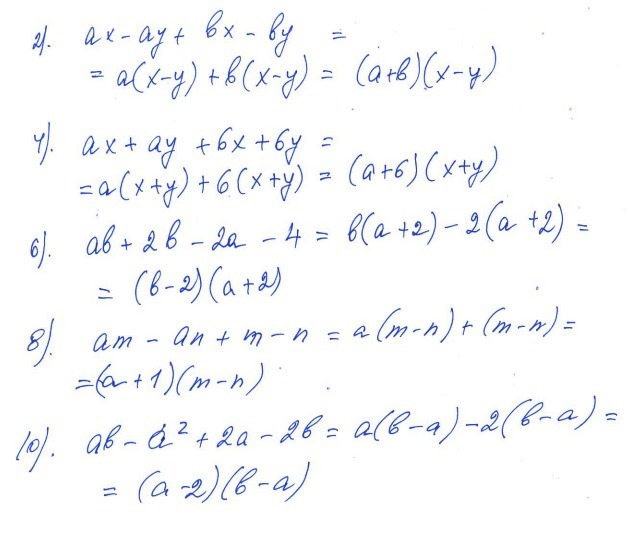 2). ax - ay + bx - by =
= a(x-y) + b(x-y) = (a+b)(x-y)
4). ax + ay + 6x + 6y =
= a(x+y) + 6(x+y) = (a+6)(x+y)
6). ab + 2b - 2a - 4 = b(a+2) - 2(a+2) =
= (b-2)(a+2)
8). am - an + m - n = a(m-n) + (m-n) =
= (a+1)(m-n)
10). ab - a² + 2a - 2b = a(b-a) - 2(b-a) =
= (a-2)(b-a)